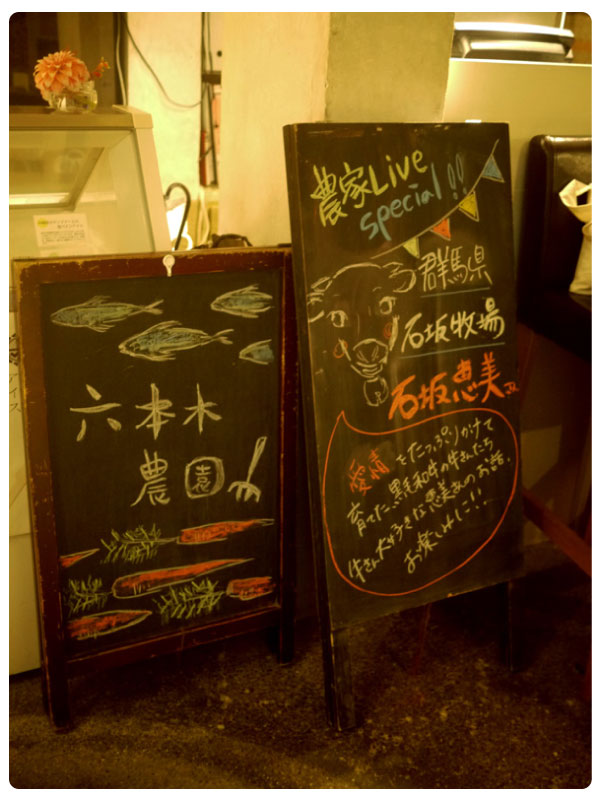 六本木
農園
農家Live
special!!
群馬県
石坂牧場
石坂恵美さん
愛情をたっぷりかけて
育てた黒毛和牛の牛さんたち
牛さん大好きな恵美さんのお話、
お楽しみに!!